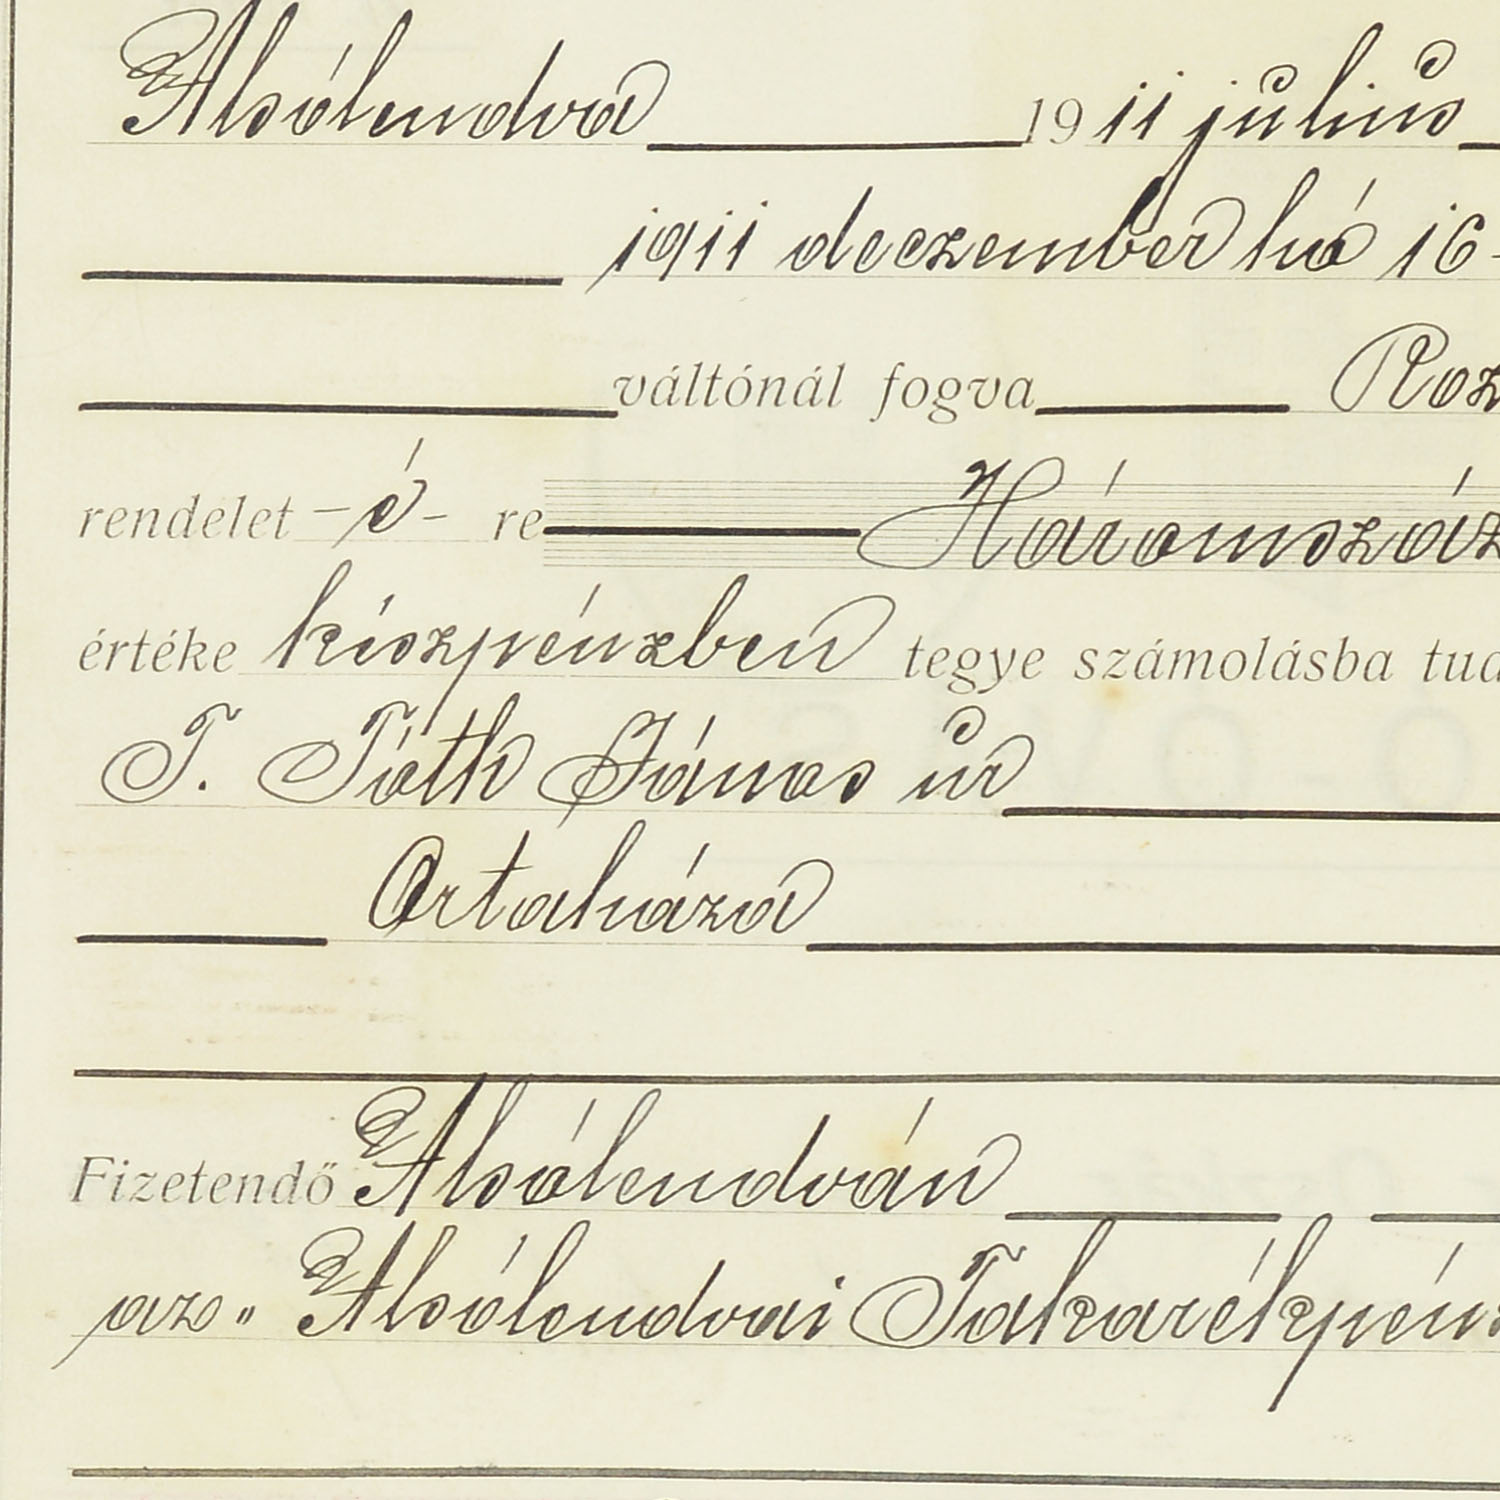 Alsólendva 1911 július
1911 deczember hó 16-
váltónál fogva Roz
rendelet -é- re Háromszáz
értéke készpénzben tegye számolásba tud
T. Tóth János úr
Ortaháza
Fizetendő Alsólendván
az „Alsólendvai Takarékpénz